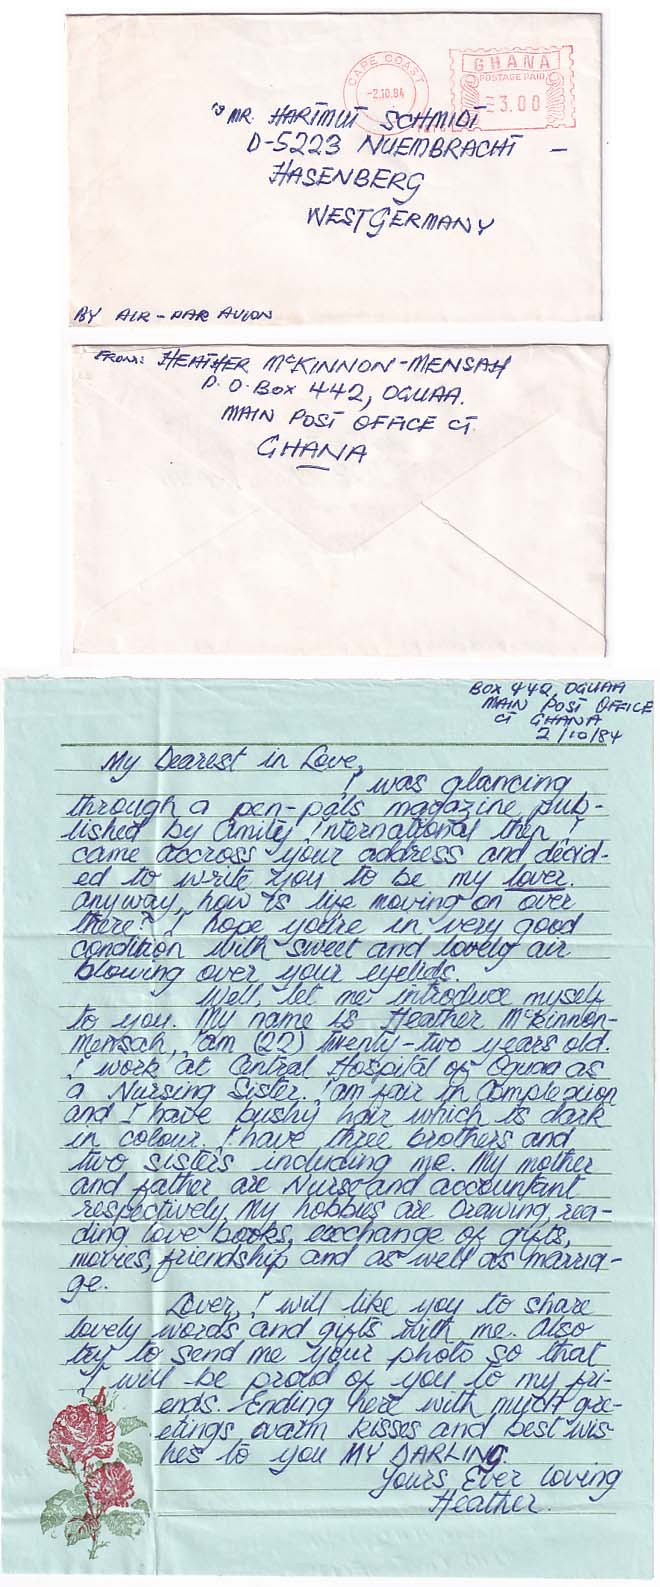 CAPE COAST
-2.10.84
GHANA
POSTAGE PAID
3.00
To MR. HARTMUT SCHMIDT
D-5223 NUEMBRACHT -
HASENBERG
WEST GERMANY
BY AIR - PAR AVION
FROM: HEATHER McKINNON-MENSAH
P.O. BOX 442, OGUAA.
MAIN POST OFFICE CT.
GHANA
BOX 442, OGUAA
MAIN POST OFFICE
CT GHANA
2/10/84
My Dearest in Love,
I was glancing
through a pen-pals magazine pub-
lished by Amity International then I
came accross your address and decid-
ed to write you to be my lover.
anyway, how is life moving on over
there? I hope you're in very good
condition with sweet and lovely air
blowing over your eyelids.
Well, let me introduce myself
to you. My name is Heather McKinnon-
mensah, I am (22) twenty-two years old.
I work at Central Hospital of Oguaa as
a Nursing Sister. I am fair in Complexion
and I have bushy hair which is dark
in colour. I have three brothers and
two sisters including me. My mother
and father are Nurse and accountant
respectively. My hobbies are Drawing, rea-
ding love books, exchange of gifts,
movies, friendship and as well as marria-
ge.
Lover, I will like you to share
lovely words and gifts with me. Also
try to send me your photo so that
I will be proud of you to my fri-
ends. Ending here with much gre-
etings, warm kisses and best wis-
hes to you MY DARLING.
Yours Ever loving
Heather.